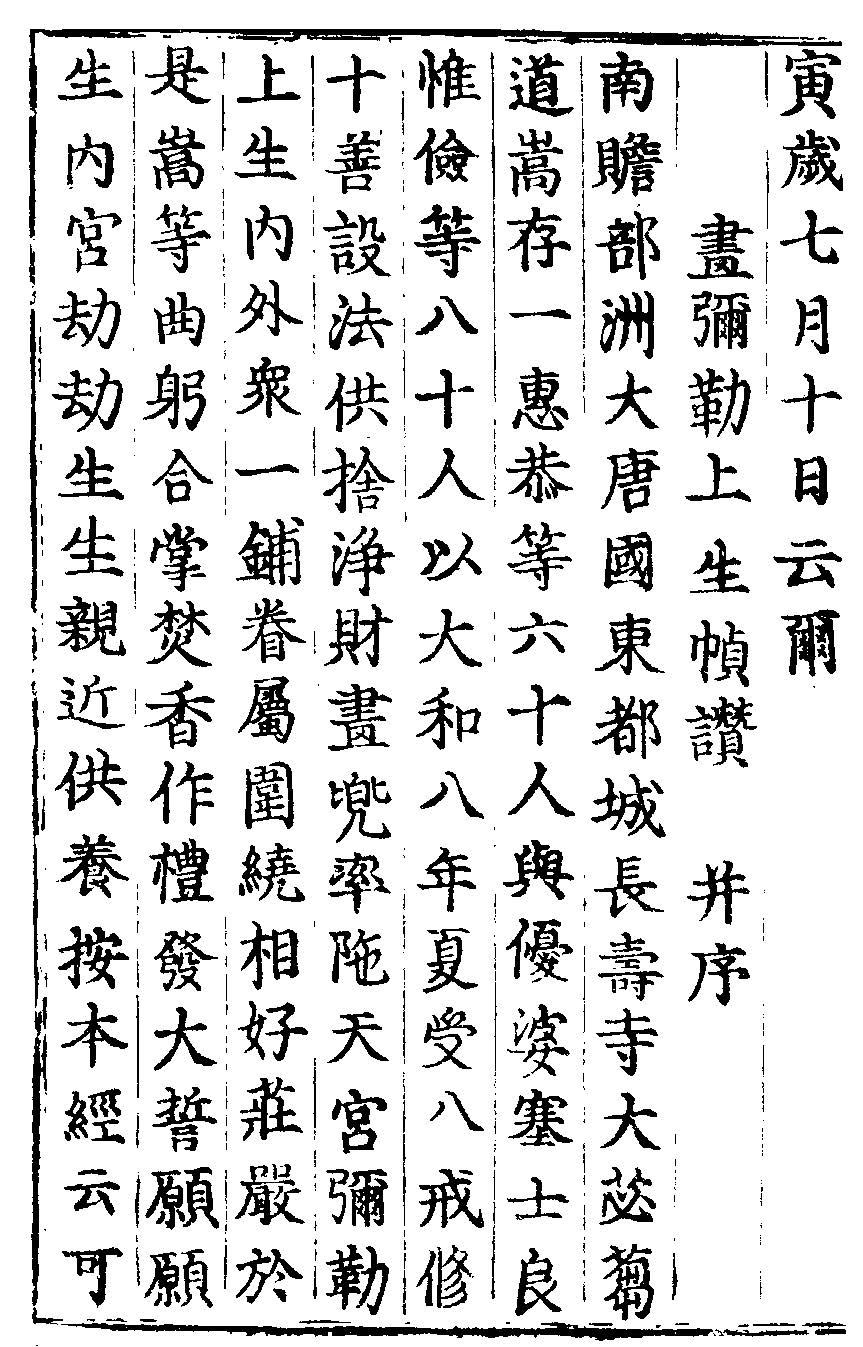 寅歲七月十日云爾
畫彌勒上生幀讚 并序
南贍部洲大唐國東都城長壽寺大苾蒭
道嵩存一惠恭等六十人與優婆塞士良
惟儉等八十人以大和八年夏受八戒修
十善設法供捨淨財畫兜率陁天宮彌勒
上生內外衆一鋪眷屬圍繞相好莊嚴於
是嵩等曲躬合掌焚香作禮發大誓願願
生內宮劫劫生生親近供養按本經云可